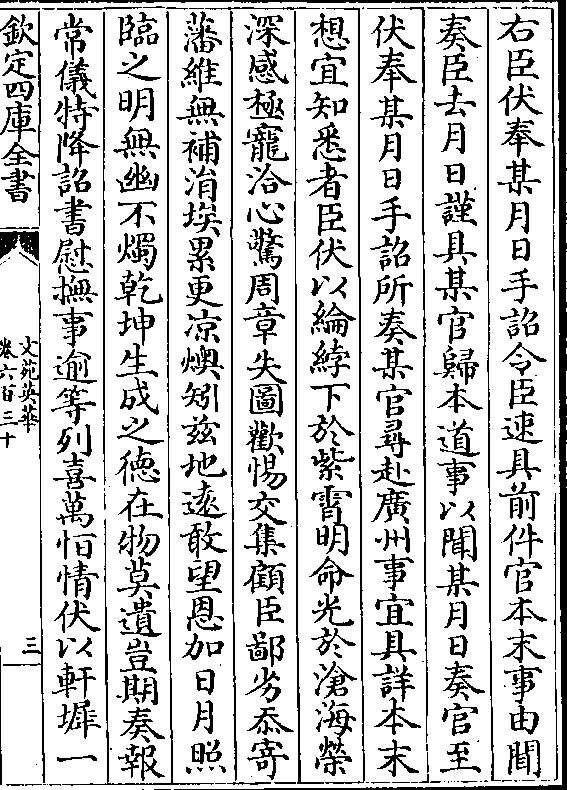 右臣伏奉某月日手詔令臣速具前件官本末事由聞
奏臣去月日謹具某官歸本道事以聞某月日奏官至
伏奉某月日手詔所奏某官尋赴廣州事宜具詳本末
想宜知悉者臣伏以綸綍下於紫霄明命光於滄海榮
深感極寵洽心驚周章失圖歡惕交集顧臣鄙劣忝寄
藩維無補涓埃累更凉燠矧兹地逺敢望恩加日月照
臨之明無幽不燭乾坤生成之德在物莫遺豈期奏報
常儀特降詔書慰撫事逾等列喜萬恒情伏以軒墀一
欽定四庫全書
文苑英華
卷六百三十
三